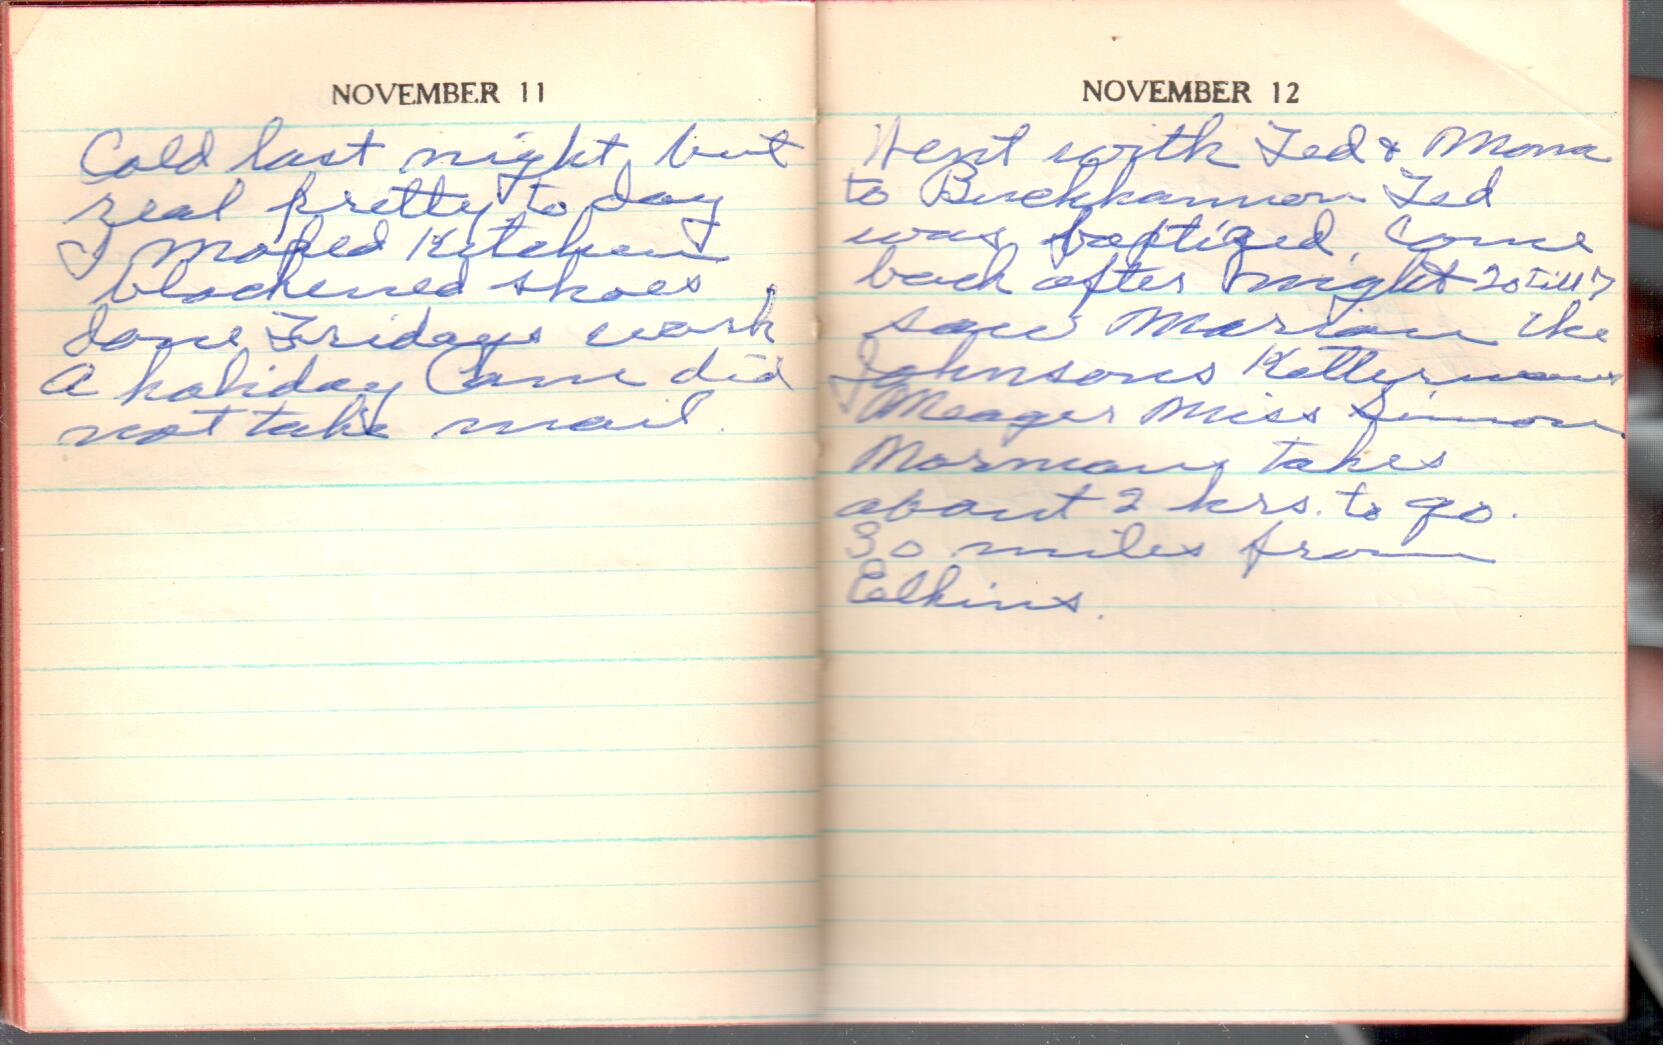 NOVEMBER 11
Cold last night, but
real pretty to day
I moped Kitchen
blackened shoes
done Fridays work
a holiday Came did
not take mail.
NOVEMBER 12
Went with Ted & Mona
to Buckhannon Ted
was baptized, Come
back after night 20 till 7
saw Marian the
Johnsons Ketterman
Meager Miss Simon
Mormans takes
about 2 hrs. to go.
30 miles from
Elkins.